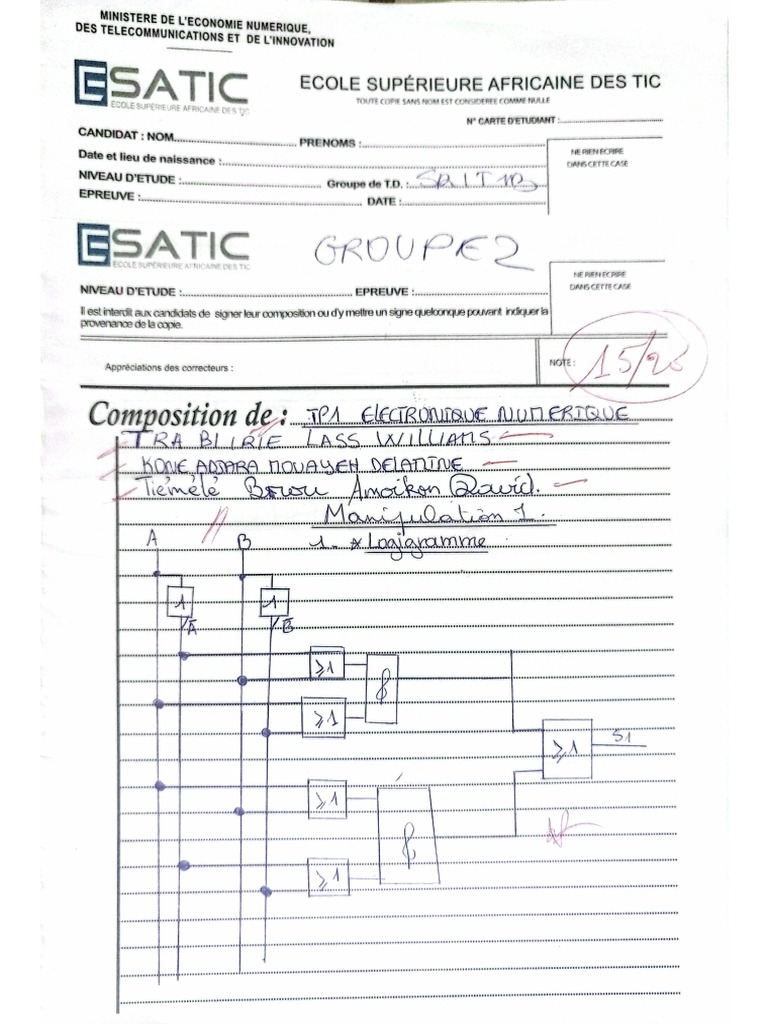 MINISTERE DE L'ECONOMIE NUMERIQUE,
DES TELECOMMUNICATIONS ET DE L'INNOVATION
ESATIC
ECOLE SUPÉRIEURE AFRICAINE DES TIC
ECOLE SUPÉRIEURE AFRICAINE DES TIC
TOUTE COPIE SANS NOM EST CONSIDEREE COMME NULLE
N° CARTE D'ETUDIANT :
CANDIDAT : NOM PRENOMS :
NE RIEN ECRIRE
DANS CETTE CASE
Date et lieu de naissance :
NIVEAU D'ETUDE : Groupe de T.D. :
EPREUVE : DATE :
ESATIC
ECOLE SUPÉRIEURE AFRICAINE DES TIC
GROUPE 2
NE RIEN ECRIRE
DANS CETTE CASE
NIVEAU D'ETUDE : EPREUVE :
Il est interdit aux candidats de signer leur composition ou d'y mettre un signe quelconque pouvant indiquer la
provenance de la copie.
Appréciations des correcteurs :
NOTE : 15/20
Composition de : TP1 ELECTRONIQUE NUMERIQUE
TRA BI IRIE LASS WILLIAMS
KONE ADJARA MOUAYEH DELAMINE
Tiémélé Amoikon David.
Manipulation 1
A B 1. * Logigramme
1 1
A̅ B̅
≥1
&
≥1
≥1 S1
≥1
&
≥1